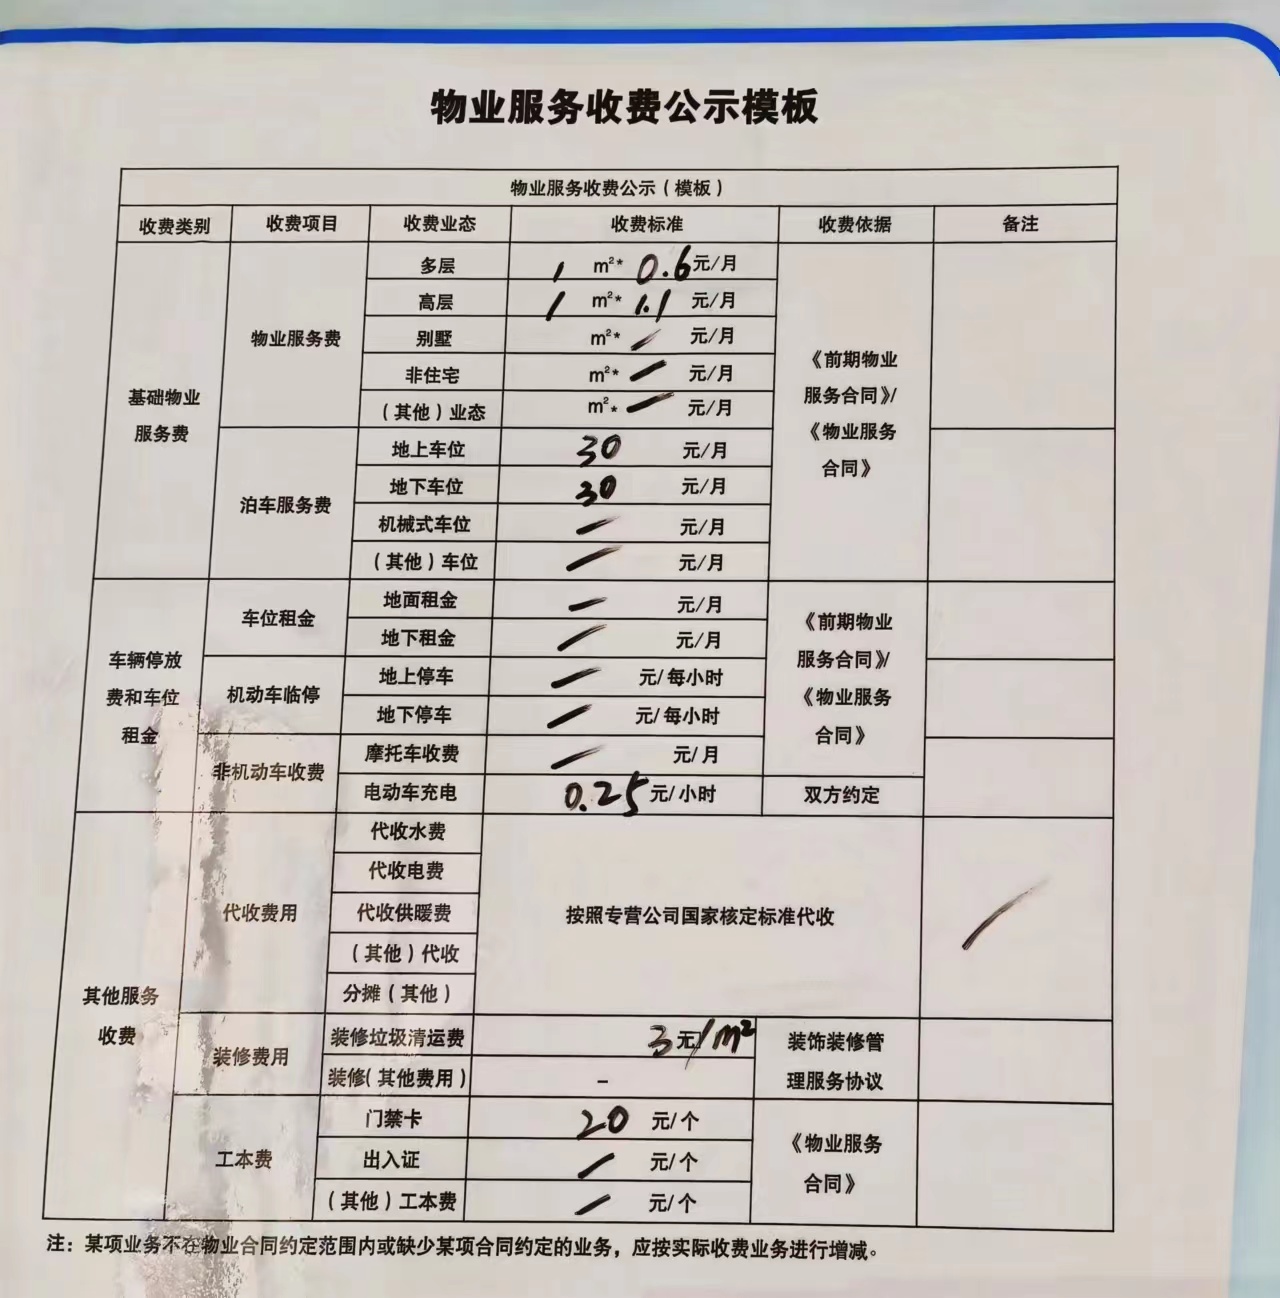 物业服务收费公示模板
物业服务收费公示（模板）
收费类别 收费项目 收费业态 收费标准 收费依据 备注
基础物业
服务费
物业服务费
多层 1 m²* 0.6 元/月
高层 1 m²* 1.1 元/月
别墅 m²* / 元/月
非住宅 m²* / 元/月
（其他）业态 m²* / 元/月
《前期物业
服务合同》/
《物业服务
合同》
泊车服务费
地上车位 30 元/月
地下车位 30 元/月
机械式车位 / 元/月
（其他）车位 / 元/月
车辆停放
费和车位
租金
车位租金
地面租金 / 元/月
地下租金 / 元/月
机动车临停
地上停车 / 元/每小时
地下停车 / 元/每小时
《前期物业
服务合同》/
《物业服务
合同》
非机动车收费
摩托车收费 / 元/月
电动车充电 0.25 元/小时 双方约定
其他服务
收费
代收费用
代收水费
代收电费
代收供暖费
（其他）代收
分摊（其他）
按照专营公司国家核定标准代收 /
装修费用
装修垃圾清运费 3元/m²
装修（其他费用） –
装饰装修管
理服务协议
工本费
门禁卡 20 元/个
出入证 / 元/个
（其他）工本费 / 元/个
《物业服务
合同》
注：某项业务不在物业合同约定范围内或缺少某项合同约定的业务，应按实际收费业务进行增减。